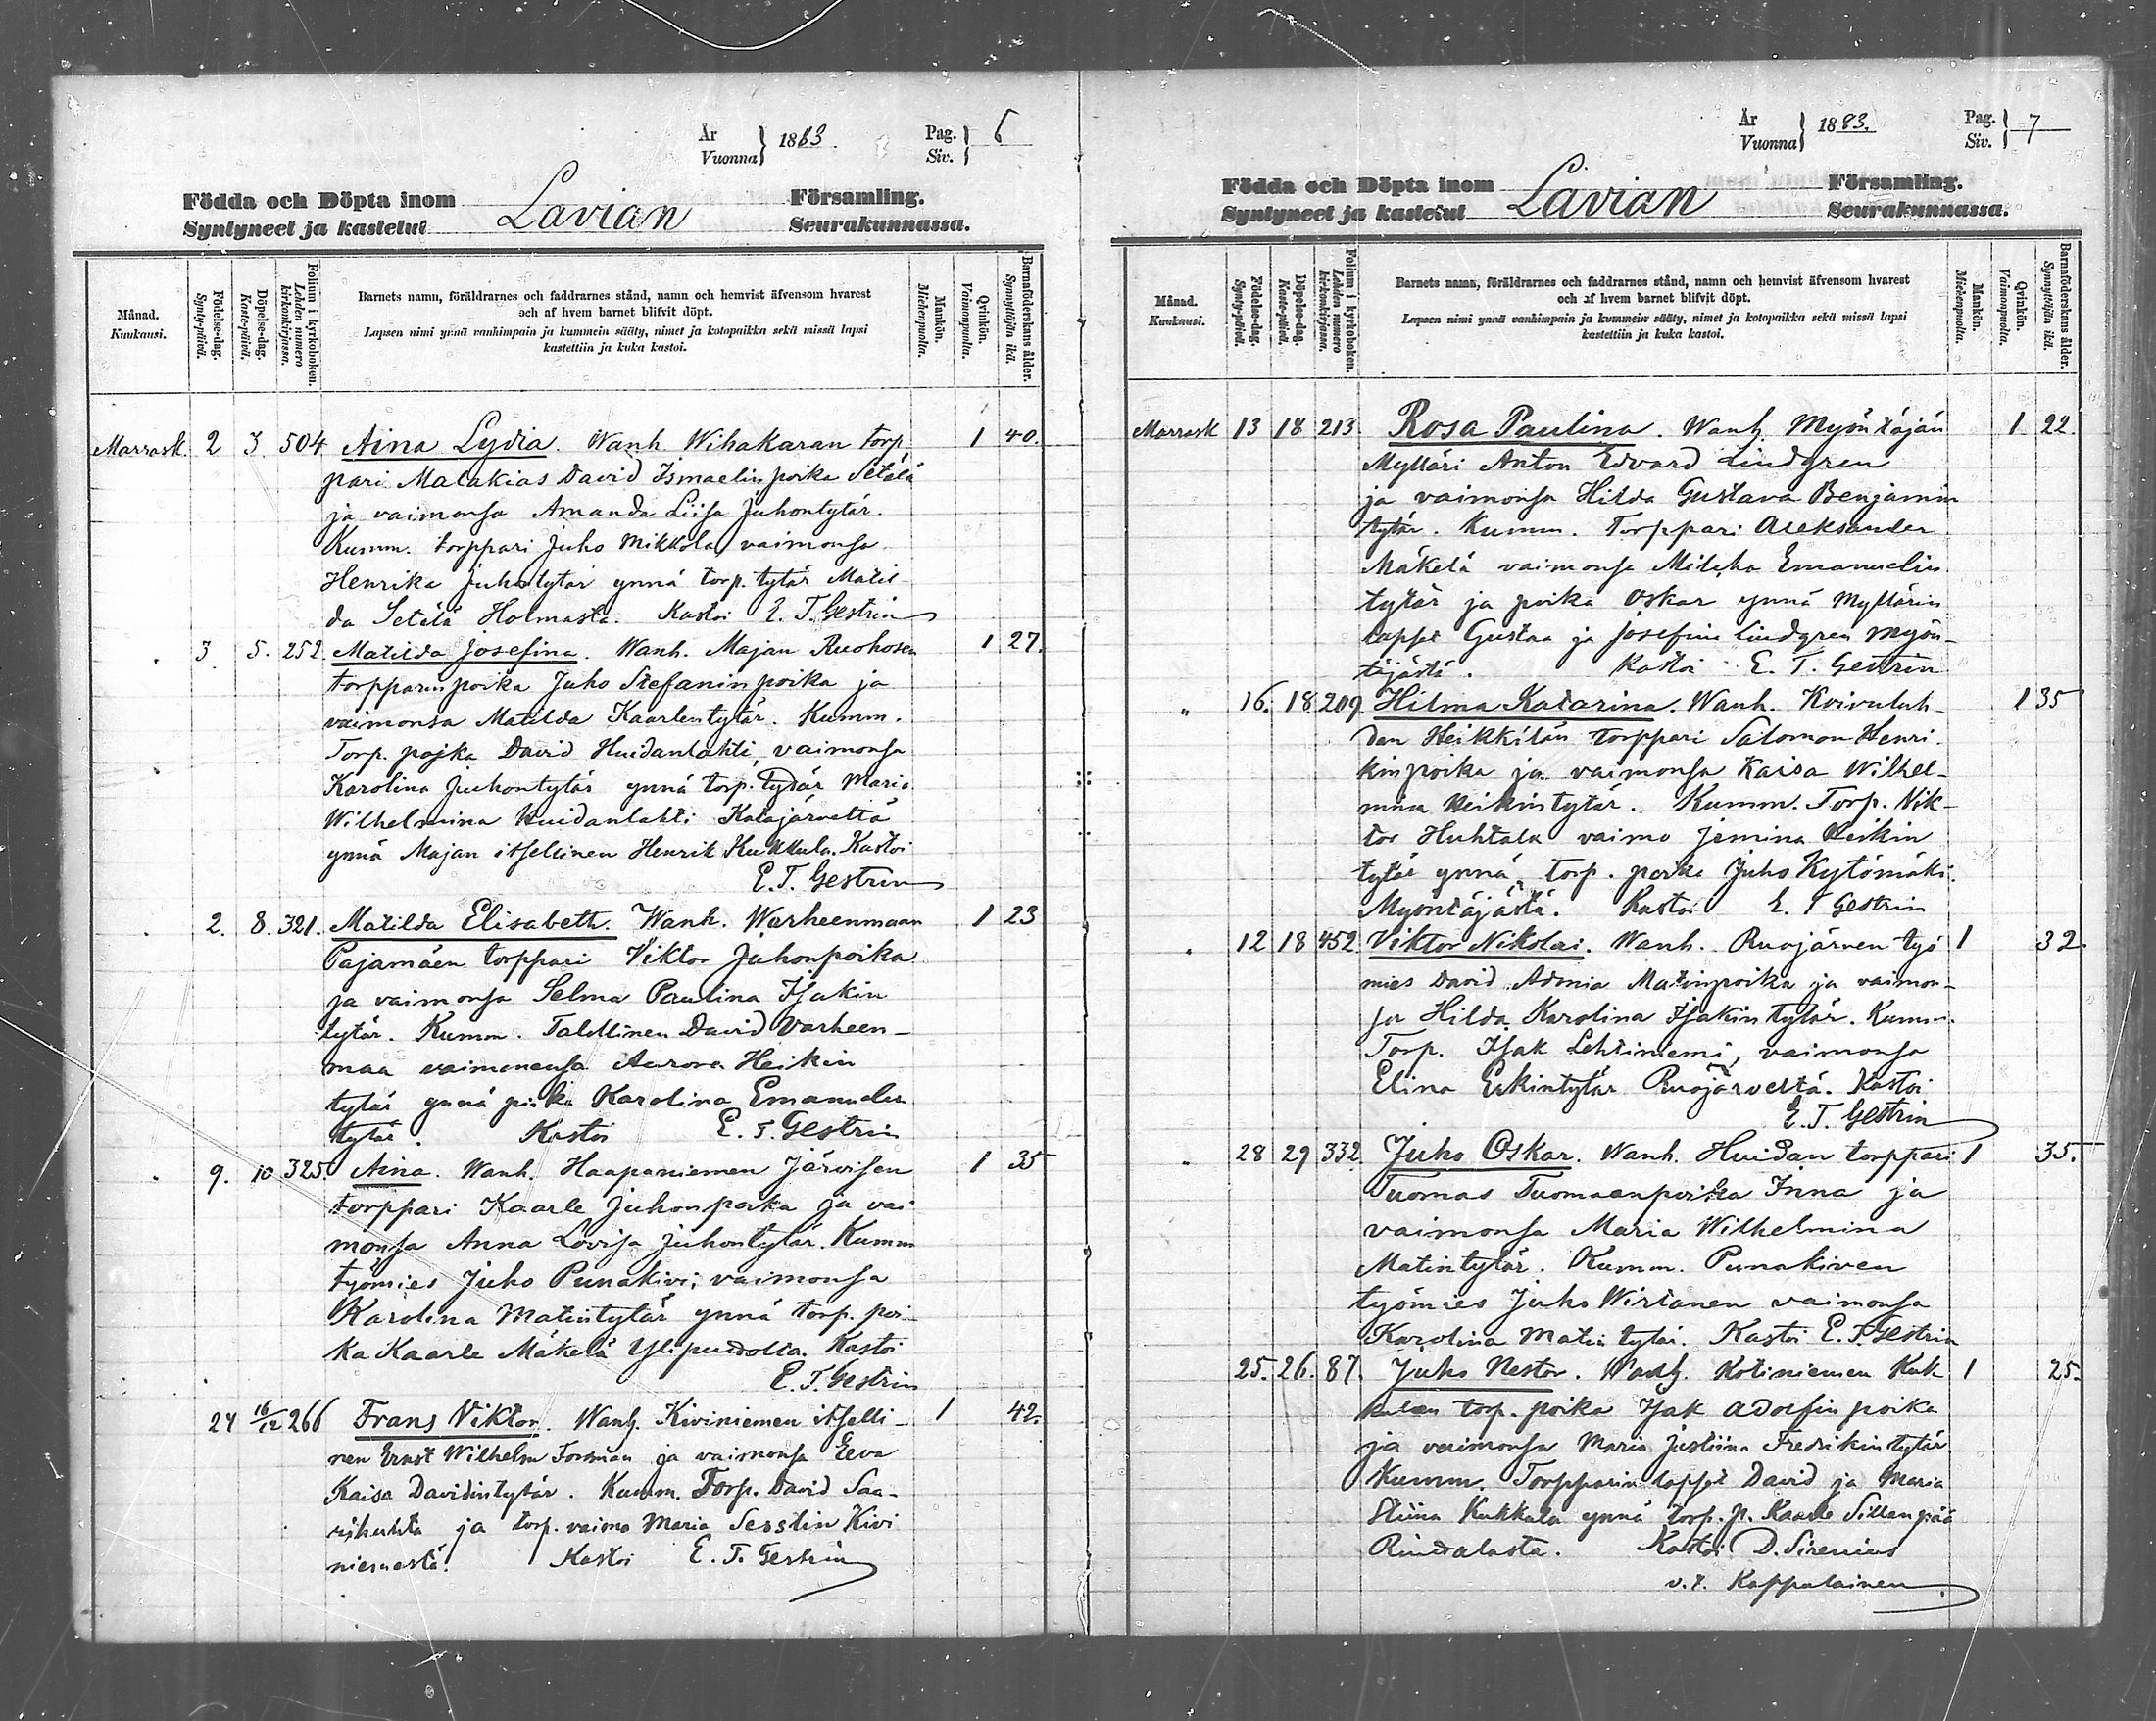 År
Vuonna } 1883. Pag.
Siv. } 6
Födda och Döpta inom Lavian Församling.
Syntyneet ja kastetut Seurakunnassa.
Månad.
Kuukausi.
Födelse-dag.
Synty-päivä.
Döpelse-dag.
Kaste-päivä.
Folium i kyrkoboken.
Lehden numero
kirkonkirjassa.
Barnets namn, föräldrarnes och faddrarnes stånd, namn och hemvist äfvensom hvarest
och af hvem barnet blifvit döpt.
Lapsen nimi ynnä vanhimpain ja kummein sääty, nimet ja kotopaikka sekä missä lapsi
kastettiin ja kuka kastoi.
Mankön.
Miehenpuolta.
Qvinkön.
Vaimonpuolta.
Barnaföderskans ålder.
Synnyttäjän ikä.
Marrask. 2 3. 504 Aina Lydia. Wanh. Wihakaran torp 1 40.
pari Malakias David Ismaelinpoika Setälä
ja vaimonsa Amanda Liisa Juhontytär.
Kumm. torppari Juho Mikkola, vaimonsa
Henrika Juhontytär ynnä torp. tytär Matil-
da Setälä Holmasta. Kastoi E. T. Gestrin
3. 5. 252. Matilda Josefina. Wanh. Majan Ruohosen 1 27.
torpparinpoika Juho Stefaninpoika ja
vaimonsa Matilda Kaarlentytär. Kumm.
Torp. pojka David Huidanlahti, vaimonsa
Karolina Juhontytär ynnä torp. tytär Maria
Wilhelmina Huidanlahti Katajärveltä
ynnä Majan itsellinen Henrik Kukkula. Kastoi
E. T. Gestrin
2. 8. 321. Matilda Elisabeth. Wanh. Warheenmaan 1 23
Pajamäen torppari Viktor Juhonpoika
ja vaimonsa Selma Paulina Isakin
tytär. Kumm. Talollinen David Varheen-
maa vaimonensa Aurora Heikin
tytär ynnä piika Karolina Emanuelin
tytär. Kastoi E. T. Gestrin
9. 10 325. Aina. Wanh. Haapaniemen Järvisen 1 35
torppari Kaarle Juhonpoika ja vai
monsa Anna Lovisa Juhontytär. Kumm
työmies Juho Punakivi, vaimonsa
Karolina Matintytär ynnä torp. poi-
ka Kaarle Mäkelä Ylipuudolta. Kastoi
E. T. Gestrin
24 16/12 266 Frans Viktor. Wanh. Kiviniemen itselli- 1 42.
nen Ernst Wilhelm Forsman ja vaimonsa Eeva
Kaisa Davidintytär. Kumm. Torp. David Saa-
rihuhta ja torp. vaimo Maria Sesslin Kivi
niemestä. Kastoi E. T. Gestrin
År
Vuonna } 1883. Pag.
Siv. } 7
Födda och Döpta inom Lavian Församling.
Syntyneet ja kastetut Seurakunnassa.
Månad.
Kuukausi.
Födelse-dag.
Synty-päivä.
Döpelse-dag.
Kaste-päivä.
Folium i kyrkoboken.
Lehden numero
kirkonkirjassa.
Barnets namn, föräldrarnes och faddrarnes stånd, namn och hemvist äfvensom hvarest
och af hvem barnet blifvit döpt.
Lapsen nimi ynnä vanhimpain ja kummein sääty, nimet ja kotopaikka sekä missä lapsi
kastettiin ja kuka kastoi.
Mankön.
Miehenpuolta.
Qvinkön.
Vaimonpuolta.
Barnaföderskans ålder.
Synnyttäjän ikä.
Marrask 13 18 213. Rosa Paulina. Wanh. Myöntäjän 1 22.
Mylläri Anton Edvard Lindgren
ja vaimonsa Hilda Gustava Benjamin
tytär. Kumm. Torppari Aleksander
Mäkelä vaimonsa Emanuelin
tytär ja poika Oskar ynnä Myllärin
lapset Gustaa ja Josefina Lindgren Myön-
täjästä. Kastoi E. T. Gestrin
„ 16. 18. 209. Hilma Katarina. Wanh. Koivuluh- 1 35
dan Heikkilän torppari Salomon Henri-
kinpoika ja vaimonsa Kaisa Wilhel-
mina Heikintytär. Kumm. Torp. Vik-
tor Huhtala vaimo Jemina Heikin
tytär ynnä torp. poika Juho Kytömäki.
Myöntäjästä. Kastoi E. T Gestrin
12 18 452 Viktor Nikolai. Wanh. Ruojärven työ 1 32.
mies David Adonia Matinpoika ja vaimon-
sa Hilda Karolina Isakin tytär. Kumm.
Torp. Isak Lehtiniemi, vaimonsa
Elina Erkintytär Ruojärveltä. Kastoi
E. T. Gestrin
„ 28 29 332 Juho Oskar. Wanh. Huidan torppari 1 35.
Tuomas Tuomaanpoika Inna ja
vaimonsa Maria Wilhelmina
Matintytär. Kumm. Punakiven
työmies Juho Wirtanen vaimonsa
Karolina Matin tytär. Kastoi E. T. Gestrin
25. 26. 87. Juho Nestor. Wanh. Kotiniemen Kuk 1 25.
kulan torp. poika Isak Adolfin poika
ja vaimonsa Maria Justiina Fredrikintytär.
Kumm. Torpparin lapset David ja Maria
Stiina Kukkula ynnä torp. p. Kaarle Sillanpää
Riuttalasta. Kastoi D. Sirenius
v.t. Kappalainen